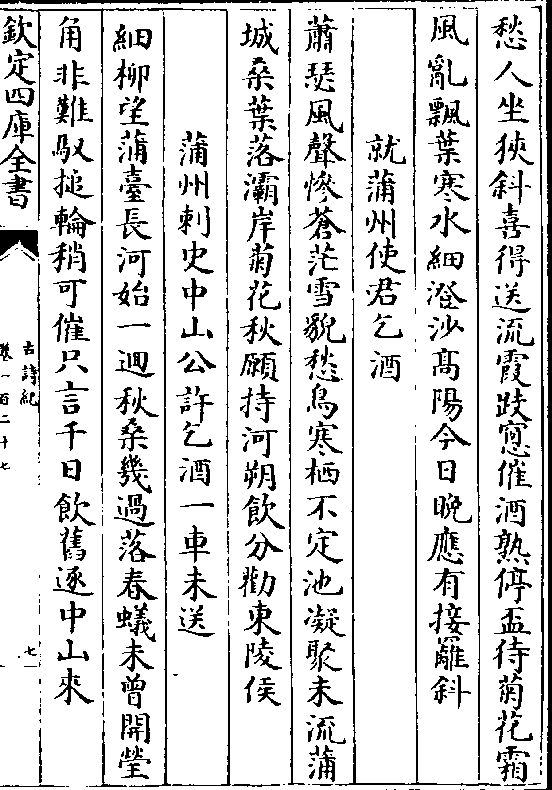 愁人坐狹斜喜得送流霞跂窻催酒熟停盃待菊花霜
風亂飄葉寒水細澄沙髙陽今日晚應有接䍦斜
就蒲州使君乞酒
蕭瑟風聲慘蒼茫雪貌愁鳥寒栖不定池凝聚未流蒲
城桑葉落灞岸菊花秋願持河朔飲分勸東陵侯
蒲州刺史中山公許乞酒一車未送
細柳望蒲臺長河始一迴秋桑幾過落春蟻未曾開瑩
角非難馭搥輪稍可催只言千日飲舊逐中山來
欽定四庫全書
古詩紀
卷一百二十七
七